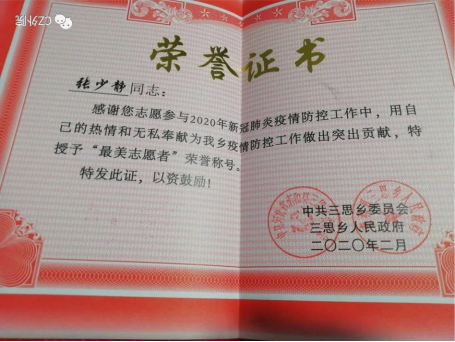 CZ外院
荣誉证书
张少静同志：
感谢您志愿参与2020年新冠肺炎疫情防控工作中，用自
己的热情和无私奉献为我乡疫情防控工作做出突出贡献，特
授予“最美志愿者”荣誉称号。
特发此证，以资鼓励！
中共三思乡委员会
三思乡人民政府
二〇二〇年二月